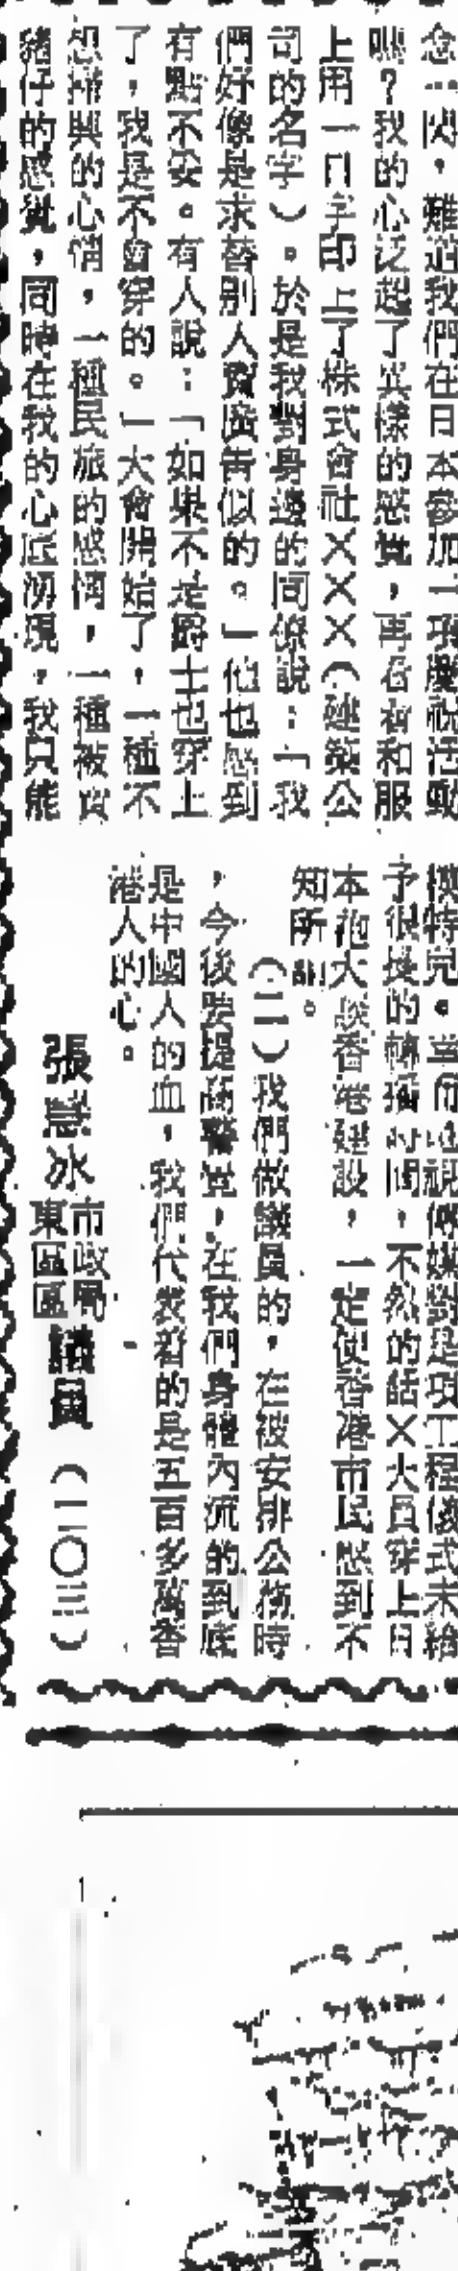 念一閃，難道我們在日本參加一項慶祝活動
嗎？我的心泛起了異樣的感覺，再看看和服
上用一日字印上了株式會社×××（建築公
司的名字）。於是我對身邊的同僚說：「我
們好像是求替別人賣廣告似的。」他也感到
有點不妥。有人說：「如果不是爵士也穿上
了，我是不會穿的。」大會開始了，一種不
想掃興的心情，一種民族的感情，一種被賣
豬仔的感覺，同時在我的心底湧現，我只能
模特兒。幸而電視傳媒對是項工程儀式未給
予很長的轉播時間，不然的話×大員穿上日
本袍大談香港建設，一定使香港市民感到不
知所謂。
（二）我們做議員的，在被安排公務時
，今後要提高警覺，在我們身體內流的到底
是中國人的血，我們代表着的是五百多萬香
港人的心。
市政局
東區區議員
張慧冰
（一〇三）